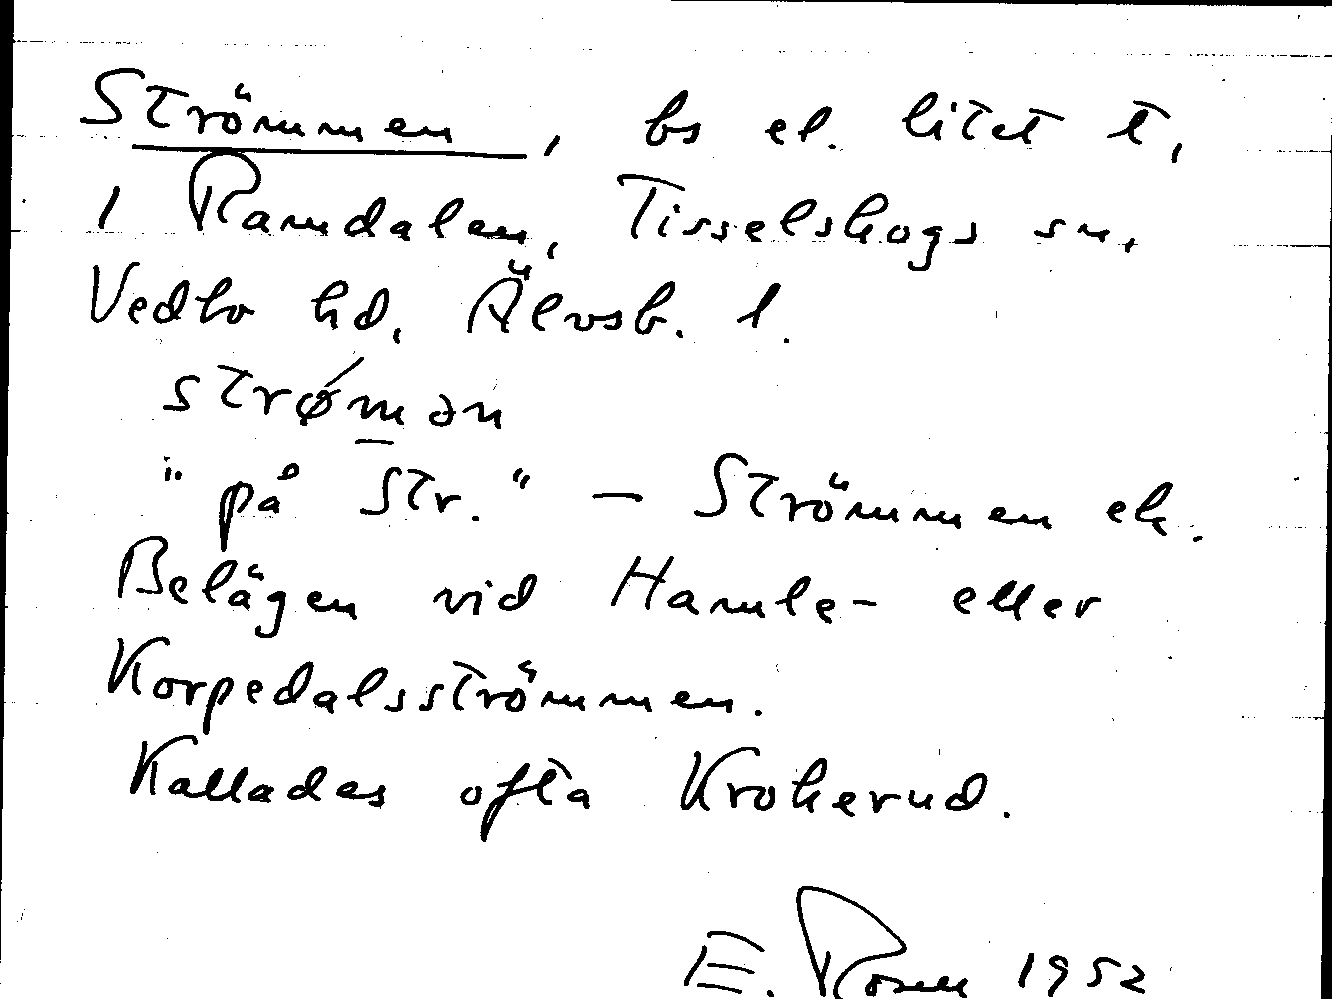 Strömmen, bs el. litet t,
i Ramdalen, Tisselskogs sn,
Vedbo hd, Älvsb. l.
strǿmən
"på Str." – Strömmen ek.
Belägen vid Hamle- eller
Korpedalsströmmen.
Kallades ofta Krokerud.
E. Rosell 1952